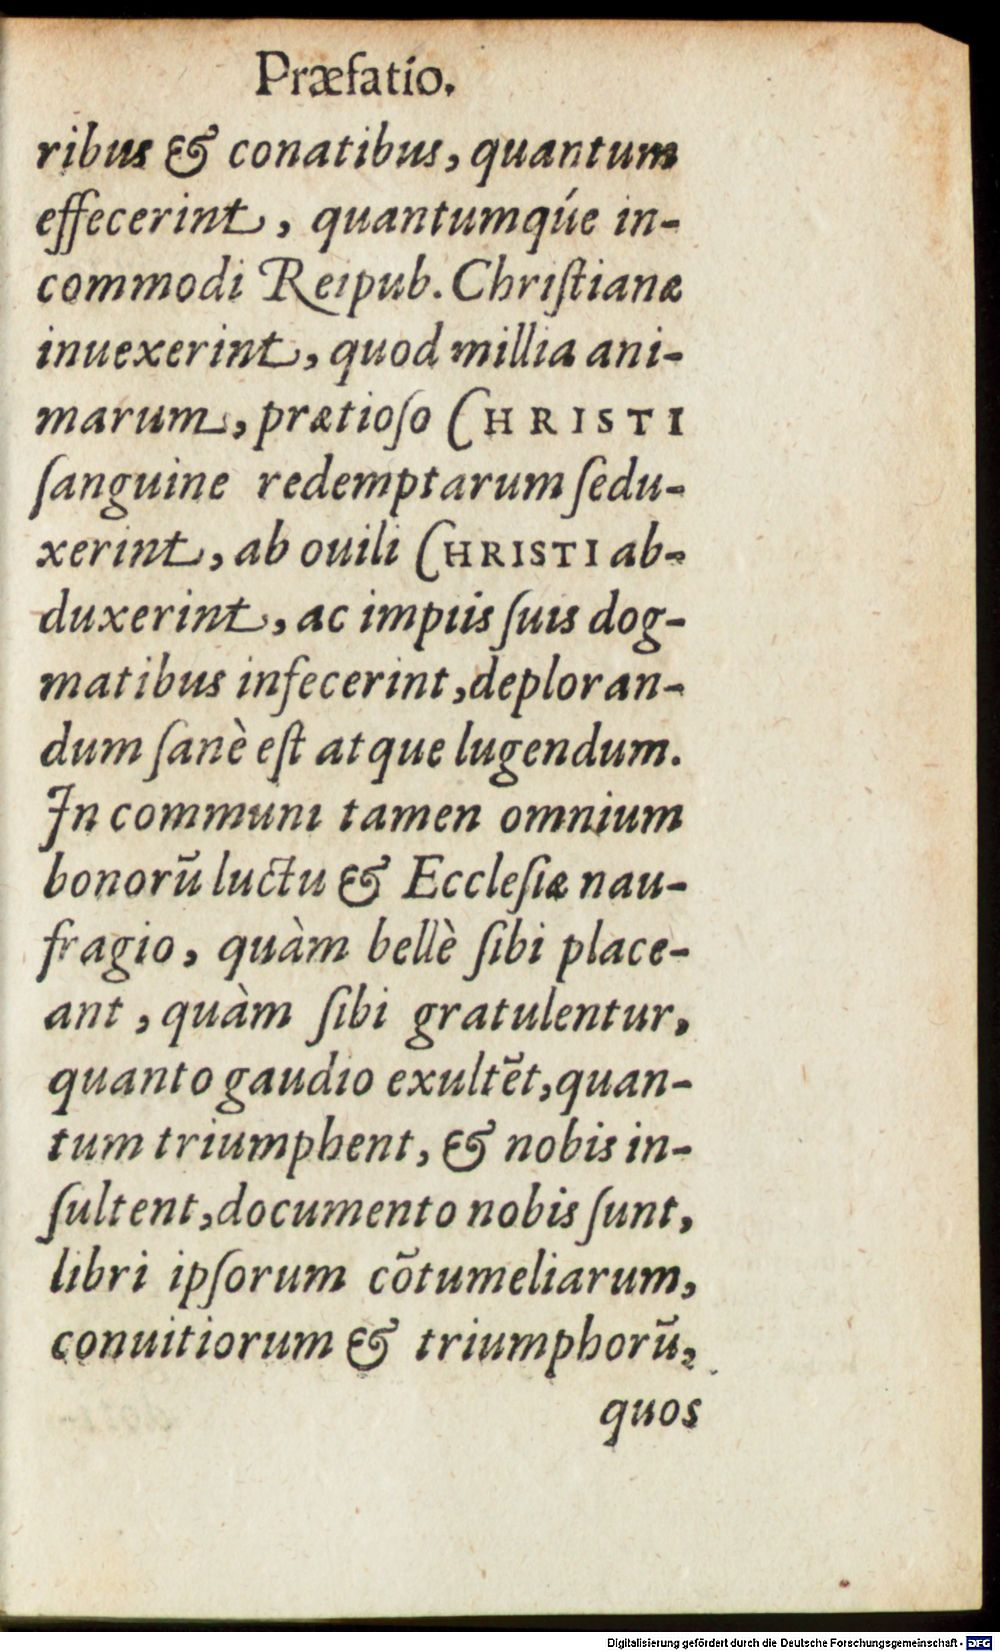 Præfatio.
ribus & conatibus, quantum
effecerint, quantumqúe in-
commodi Reipub. Chriſtianæ
inuexerint, quod millia ani-
marum, prætioſo CHRISTI
ſanguine redemptarum ſedu-
xerint, ab ouili CHRISTI ab-
duxerint, ac impiis ſuis dog-
matibus infecerint, deploran-
dum ſanè eſt atque lugendum.
In communi tamen omnium
bonorū luctu & Eccleſiæ nau-
fragio, quàm bellè ſibi place-
ant, quàm ſibi gratulentur,
quanto gaudio exultēt, quan-
tum triumphent, & nobis in-
ſultent, documento nobis ſunt,
libri ipſorum cōtumeliarum,
conuitiorum & triumphorū,
quos
Digitalisierung gefördert durch die Deutsche Forschungsgemeinschaft - DFG